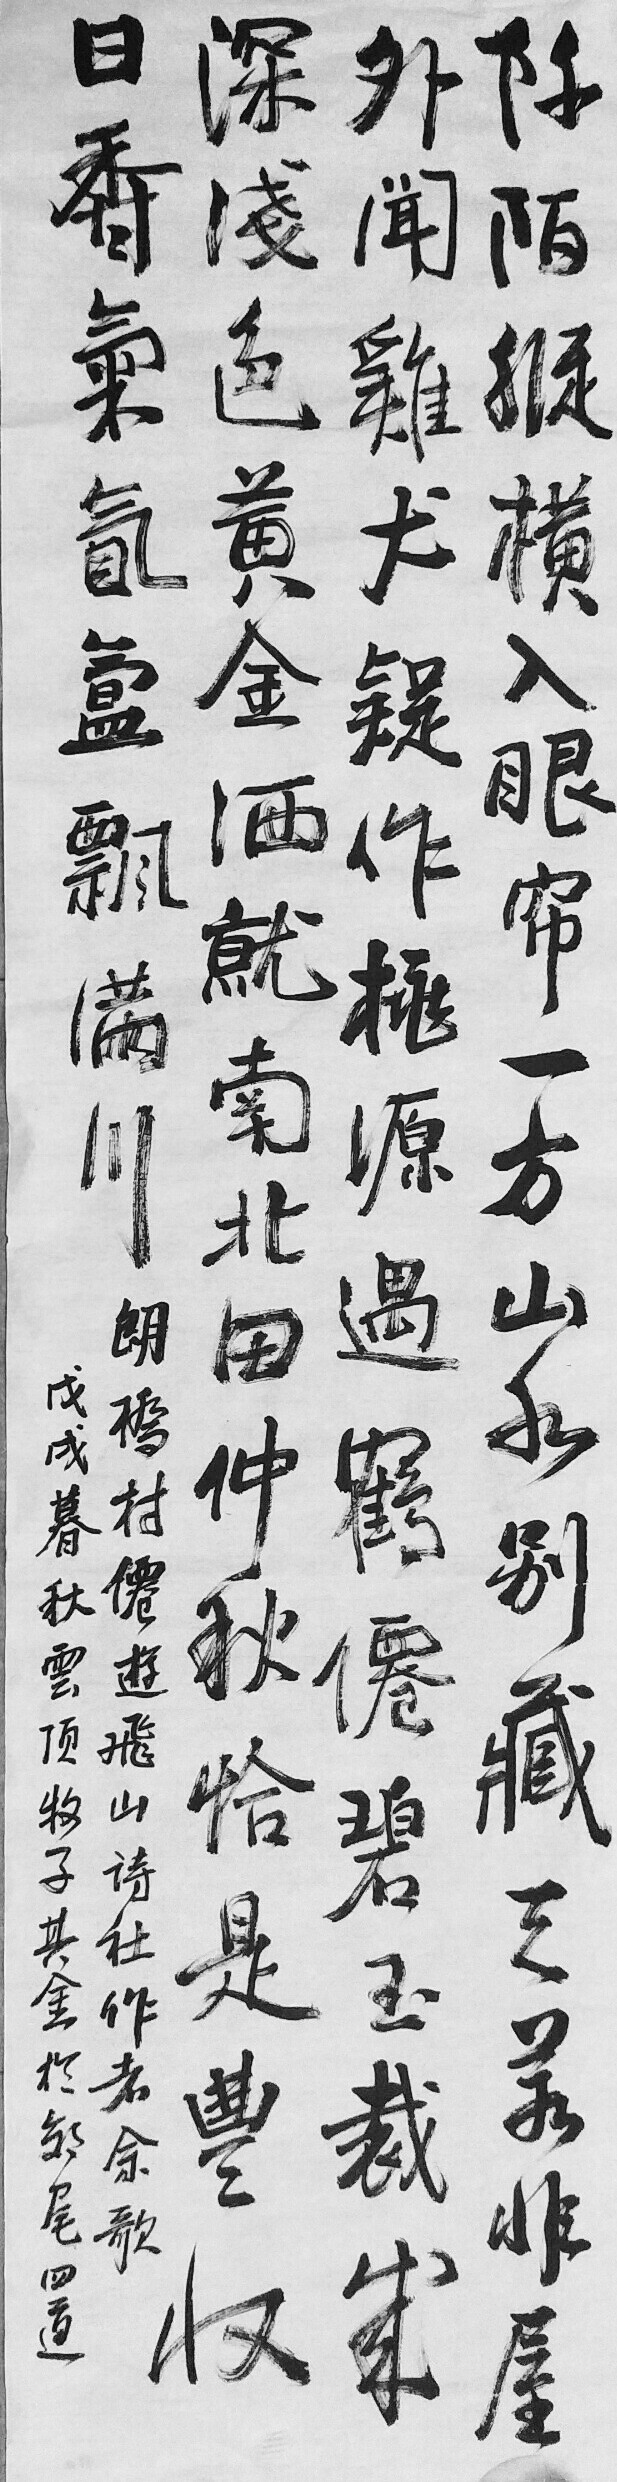 阡陌縱橫入眼帘一方山水别藏天若非屋
外聞雞犬疑作桃源遇鶴僊碧玉裁成
深淺色黄金洒就南北田仲秋恰是豐收
日香氣氤氳飄满川
朗橋村僊遊飛山詩社作者余歌
戊戌暮秋雲顶牧子其金於尾四道